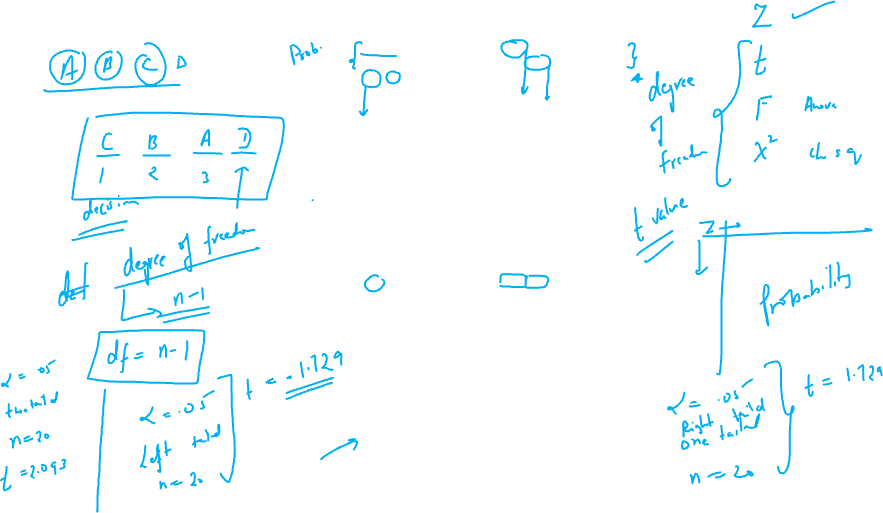 A B C D
Prob.
C B A D
1 2 3
decision
df degree of freedom
n-1
df = n-1
α = .05
two tailed
n=20
t = 2.093
α = .05
Left taild
n = 20
t = -1.729
Z
t
F Anova
χ² chi sq
degree
of
freedom
t value
Z
Probability
α = .05
Right taild
one tailed
n = 20
t = 1.729